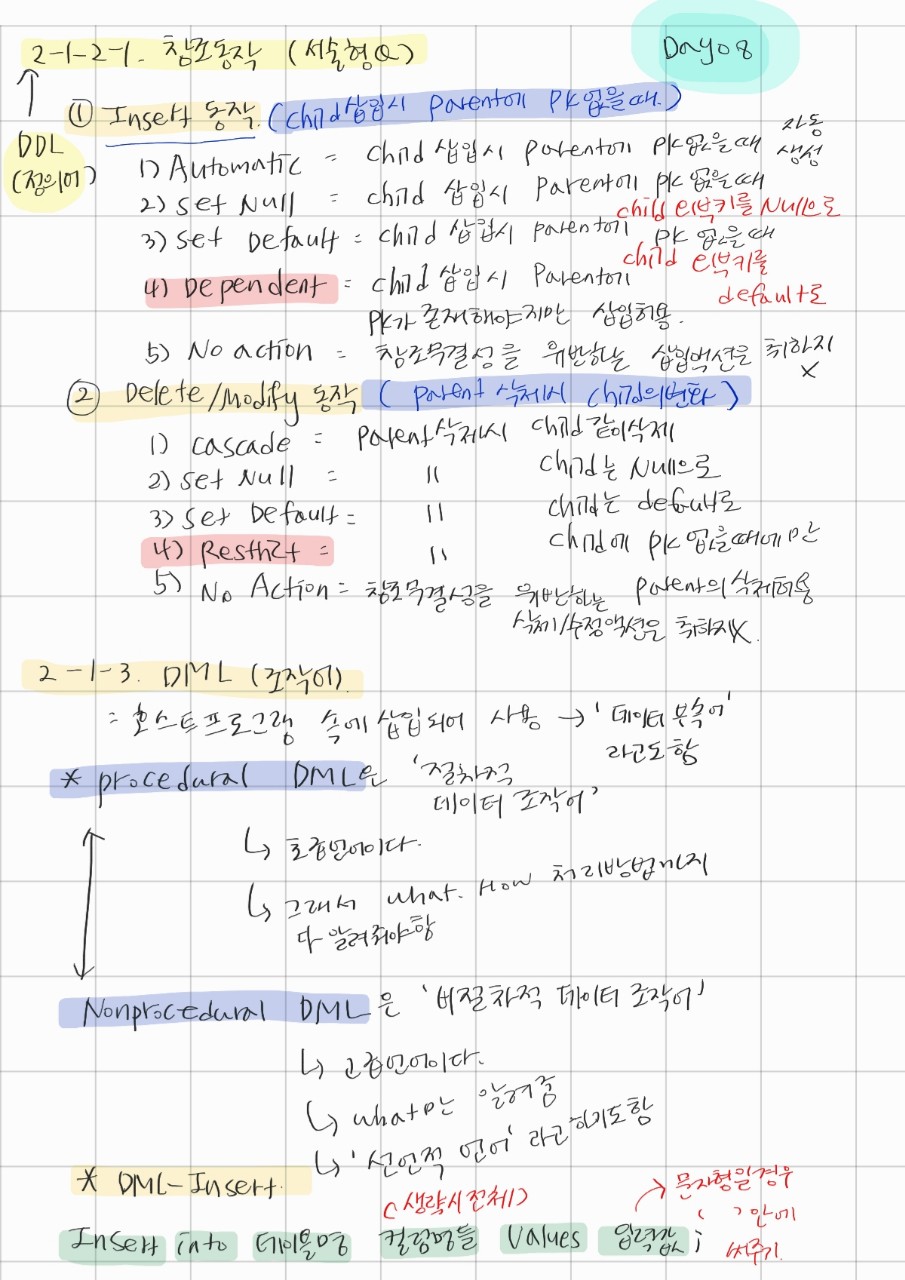 2-1-2-1. 참조동작 (서술형Q)
Day08
DDL
(정의어)
① Insert 동작. (child삽입시 Parent에 PK없을때.)
1) Automatic = child 삽입시 Parent에 PK없을때 자동생성
2) Set Null = child 삽입시 Parent에 PK없을때
child 외부키를 Null으로
3) Set Default = child 삽입시 Parent에 PK없을때
child 외부키를
default로
4) Dependent = child 삽입시 Parent에
PK가 존재해야지만 삽입허용.
5) No action = 참조무결성을 위반하는 삽입액션을 취하지 X
② Delete/Modify 동작 (Parent 삭제시 child의변화)
1) Cascade = Parent삭제시 child같이삭제
2) Set Null = 〃 child는 Null으로
3) Set Default = 〃 child는 default로
4) Restrict = 〃 child에 PK없을때에만
Parent의삭제허용
5) No Action = 참조무결성을 위반하는
삭제/수정액션은 취하지X.
2-1-3. DML (조작어)
= 호스트프로그램 속에 삽입되어 사용 → '데이터 부속어'
라고도함
* procedural DML은 '절차적
데이터 조작어'
↳ 초급언어이다.
↳ 그래서 what. How 처리방법까지
다 알려줘야함
Nonprocedural DML은 '비절차적 데이터 조작어'
↳ 고급언어이다.
↳ what만 알려줌
↳ '선언적 언어' 라고하기도함
* DML-Insert.
(생략시전체)
→ 문자형일경우
' '안에
써주기
Insert into 테이블명 컬럼명들 Values 입력값 ;